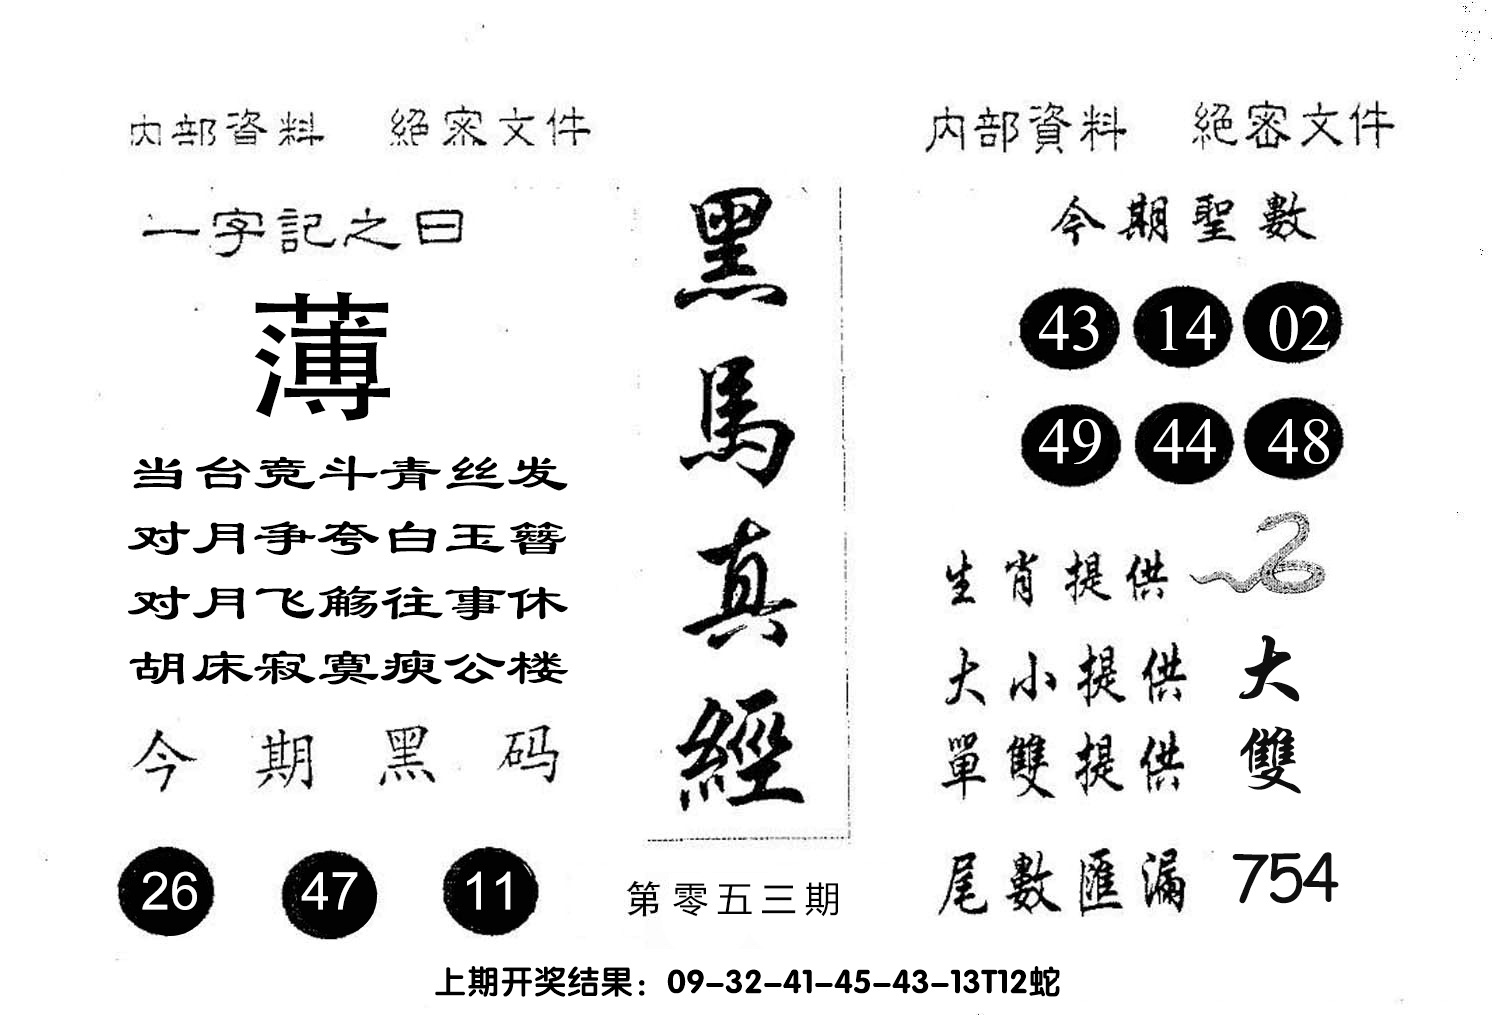 内部資料 絕密文件
一字記之曰
薄
当台竞斗青丝发
对月争夸白玉簪
对月飞觞往事休
胡床寂寞瘐公楼
今期黑码
26 47 11
黑馬真經
第零五三期
内部資料 絕密文件
今期聖數
43 14 02
49 44 48
生肖提供
大小提供 大
單雙提供 雙
尾數匯漏 754
上期开奖结果：09-32-41-45-43-13T12蛇